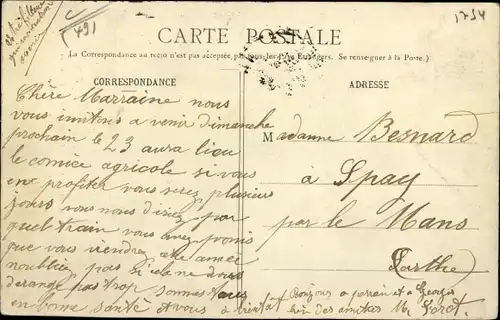 (49)
1754
CARTE POSTALE
(La Correspondance au recto n'est pas acceptée par tous les Pays Etrangers. Se renseigner à la Poste.)
CORRESPONDANCE
Chère Marraine nous
vous invitons a venir dimanche
prochain le 23 aura lieu
le comice agricole si vous
en profitez vous serez plusieurs
jours vous nous direz par
quel train vous avez promis
que vous viendrez cette année
noubliez pas si cela ne vous
derange pas trop sommes tous
en bonne santé et vous a bientot
ADRESSE
Madame Besnard
à Spay
par le Mans
Sarthe)
Bonjour a parrain et a Georges
bien des amitiés